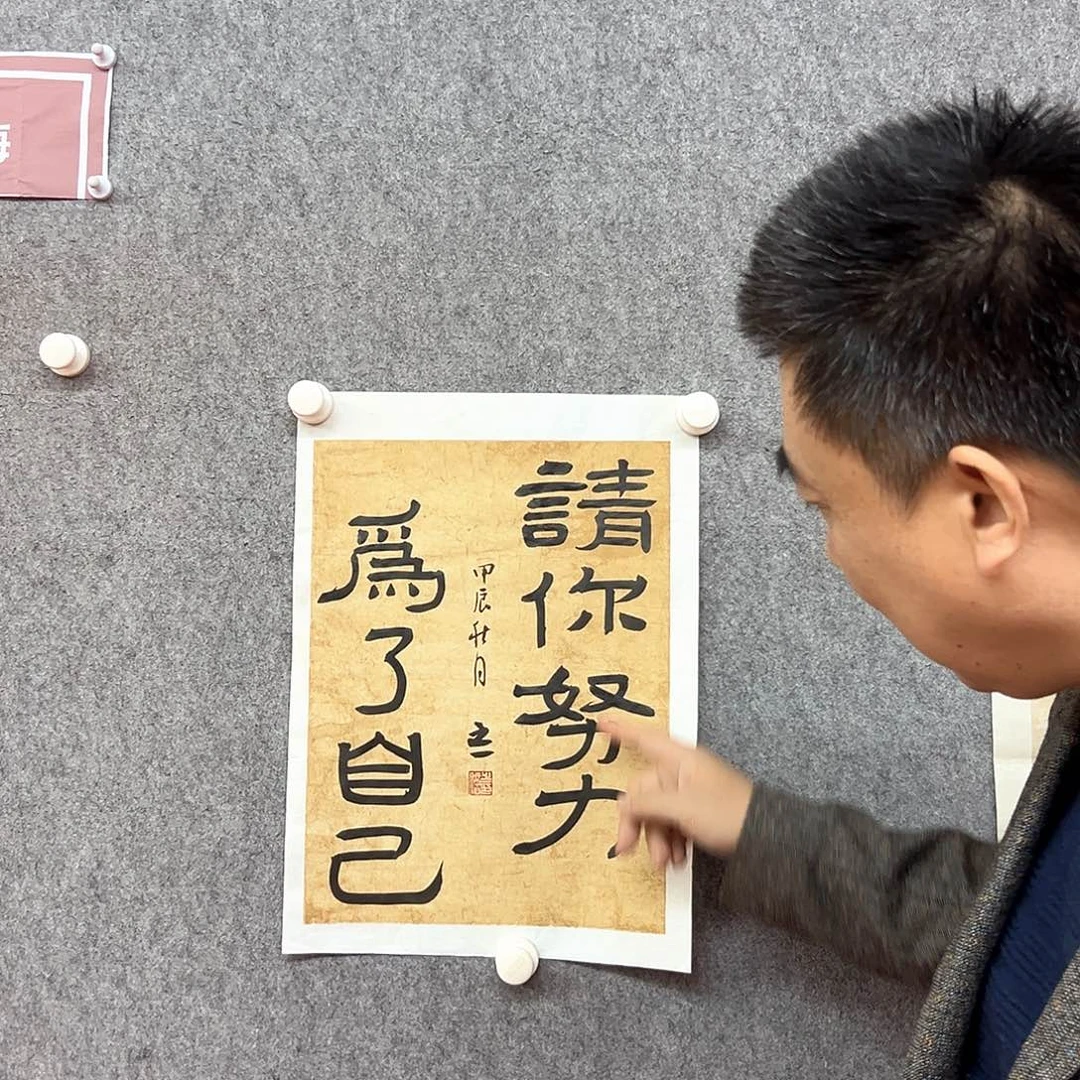 請你努力
爲了自己
甲辰秋月